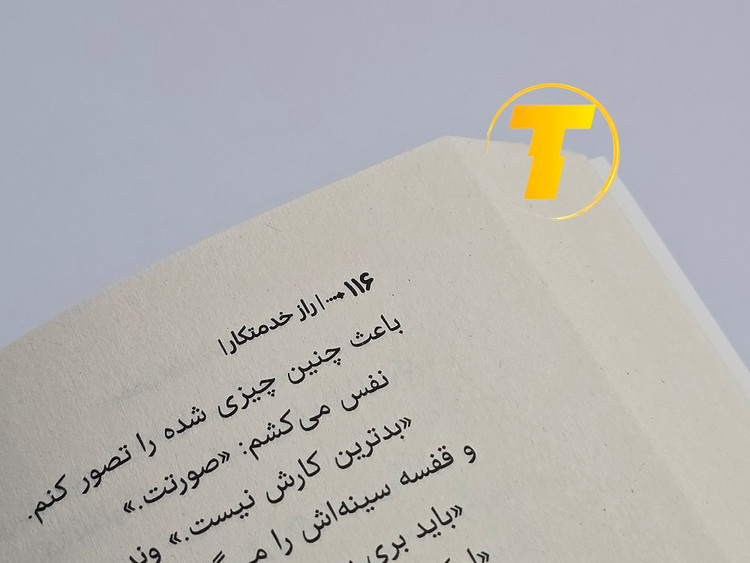 T
۱۱۶ | راز خدمتکار |
باعث چنین چیزی شده را تصور کنم.
نفس می‌کشم: «صورتت.»
«بدترین کارش نیست.» وند
و قفسه سینه‌اش را می
«باید بری